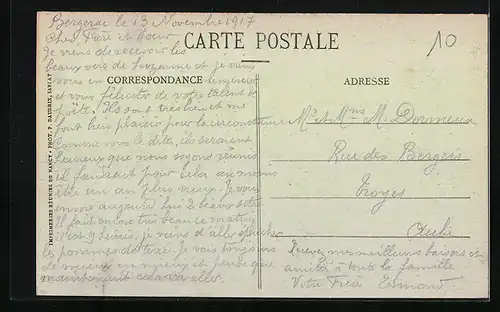 Bergerac le 13 Novembre 1917
Cher Frère et Sœur
Je viens de recevoir les
beaux vers de Suzanne et je viens
vous en remercier
et vous félicite de votre talent de
poète. Ils sont très bien et me
font bien plaisir pour la circonstance
Comme vous le dites, ils seraient
heureux que nous soyons réunis
il faudrait pour cela au moins
être en an plus vieux. Je vous
envoie aujourd'hui 2 beaux
Il fait encore très beau ce matin
il est 9 heures, je viens d'aller
les pommes de terre. Je vais toujours
de mieux en mieux et pense que
maintenant aller.
CARTE POSTALE
CORRESPONDANCE
ADRESSE
10
Mr et Mme M. Dormeux
Rue des Bergers
Troyes
Aube
Recevez mes meilleurs baisers et
amitiés à toute la famille
Votre Frère Edmond
IMPRIMERIES RÉUNIES DE NANCY - PHOT. P. DAUBRIX, SARLAT